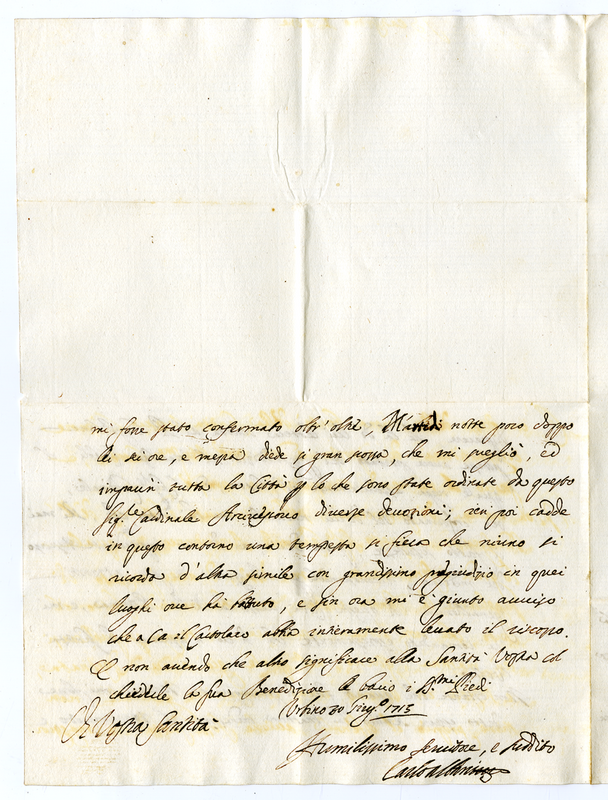 mi fosse stato confermato oltr'oltre, Martedi notte poco doppo
le sei ore, e mezza diede si gran scossa, che mi svegliò, ed
impaurì tutta la Città p lo che sono state ordinate da questo
Sig.le Cardinale Arcivescovo diverse devozioni; ieri poi cadde
in questo contorno una tempesta si fiera che niuno si
ricorda d'altra simile con grandissimo pregiudizio in quei
luoghi ove hà battuto, e fin ora mi è giunto avviso
che a Ca il Cattolaio abbia interamente levato il riccopo.
E non avendo che altro significare alla Santità Vostra col
chiederle la sua Benedizione le bacio i S.mi Piedi
Di Vostra Santità
Urbino 30 Giug.o 1713
Humilissimo servitore, e suddito
Carlo Albani